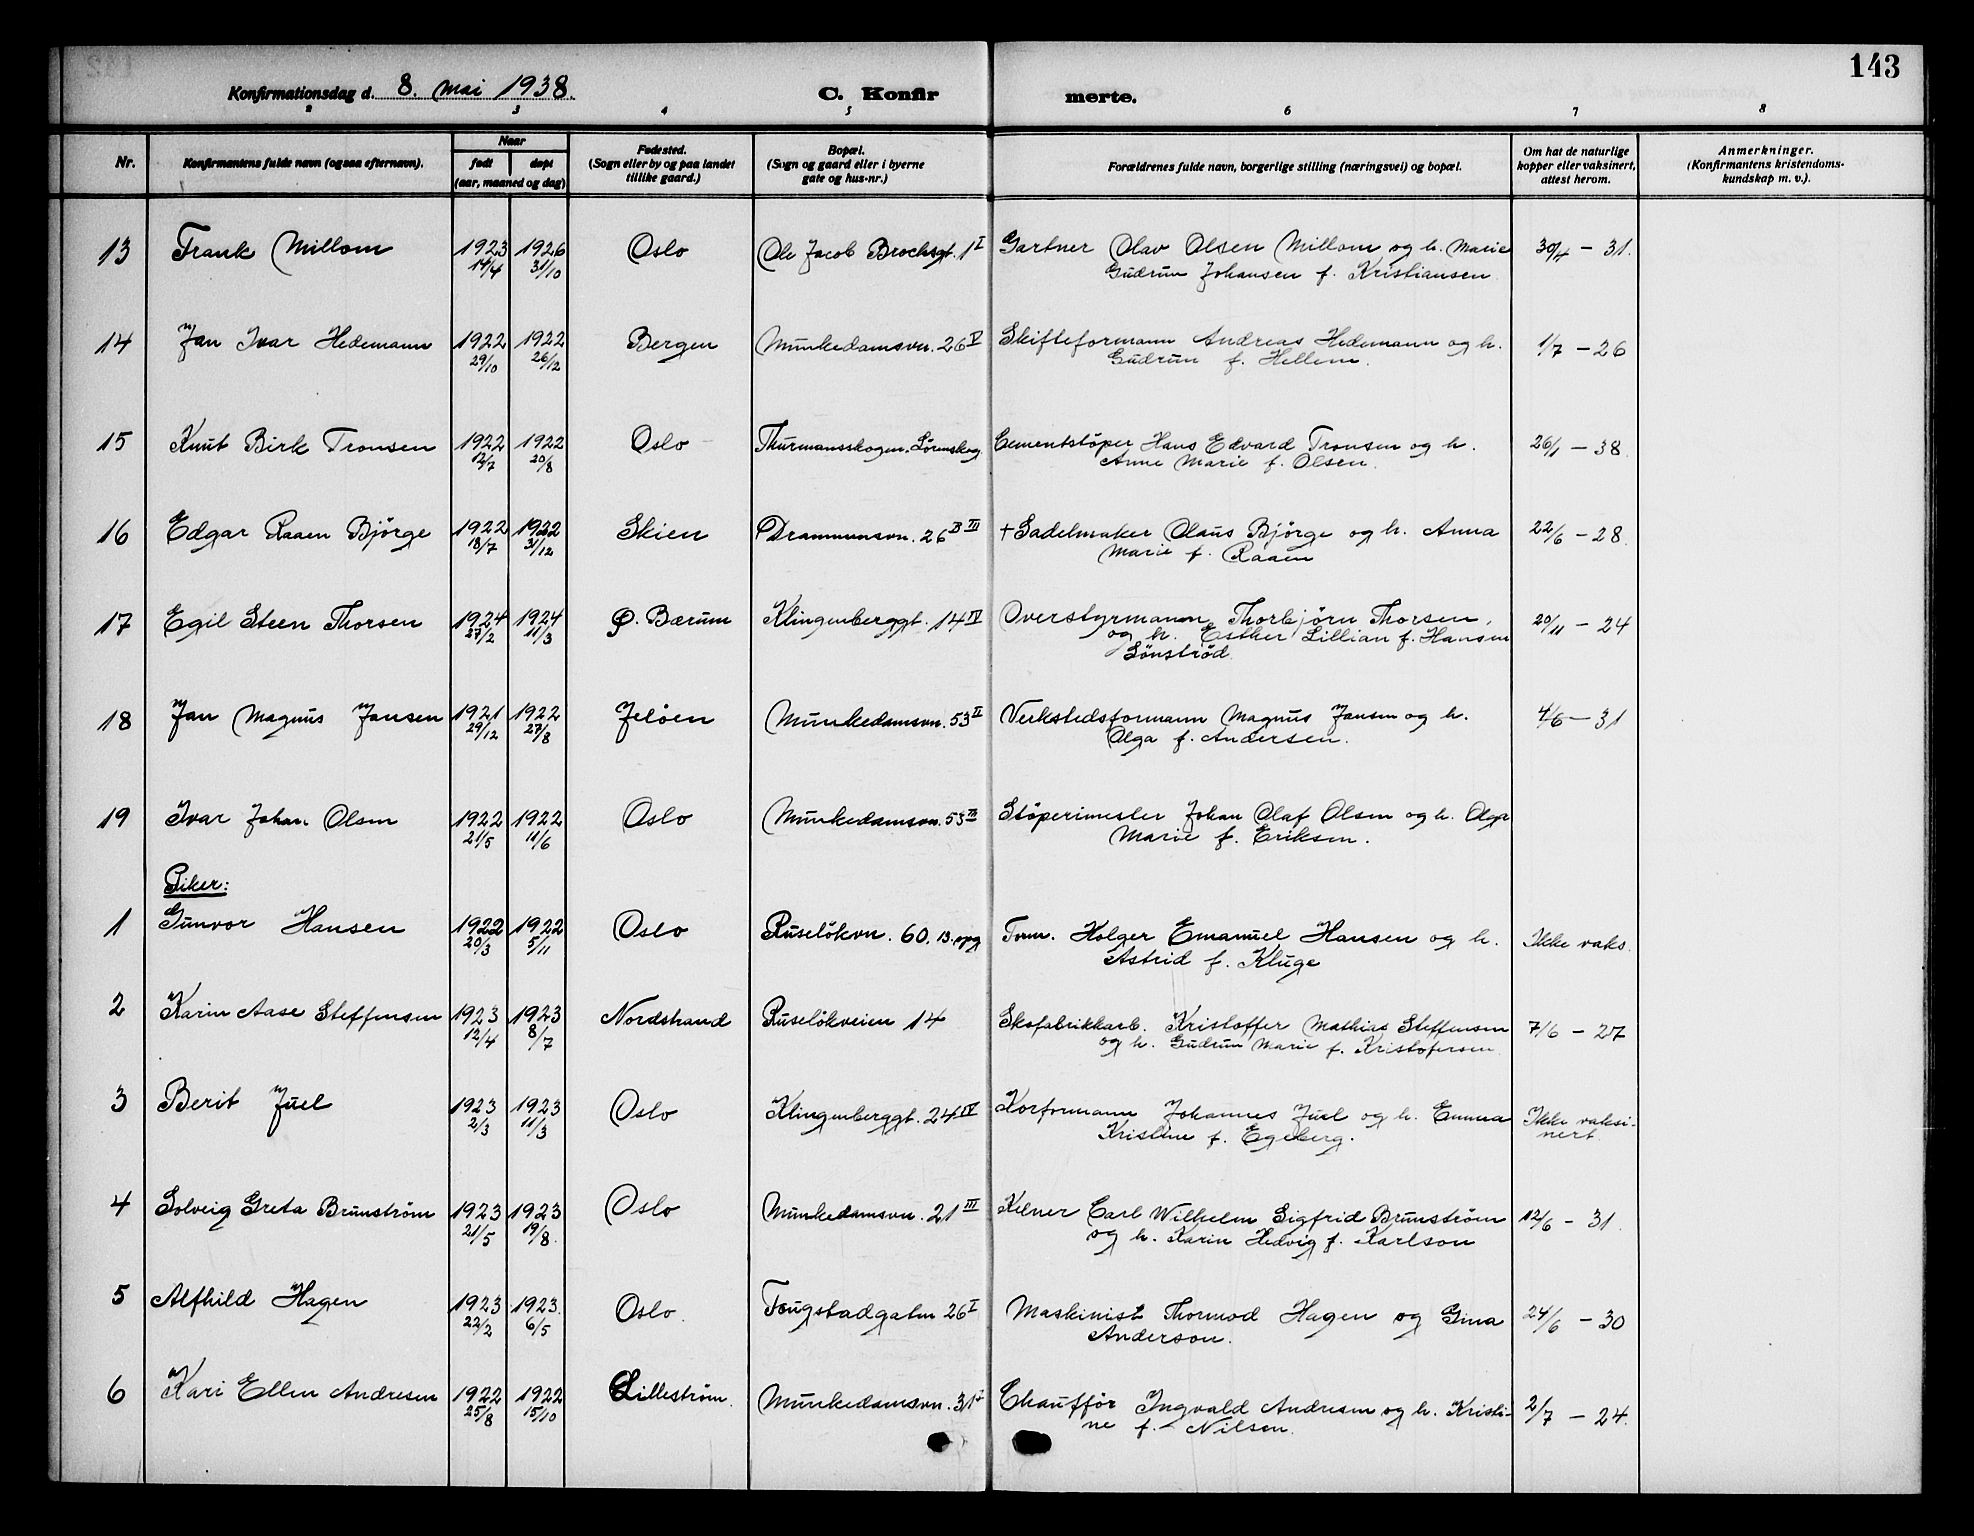 143
Konfirmationsdag d. 8. mai 1938. C. Konfir merte.
2 3 4 5 6 7 8
Nr. Konfirmantens fulde navn (ogsaa efternavn). Naar født døpt (aar, maaned og dag) Fødested. (Sogn eller by og paa landet tillike gaard.) Bopæl. (Sogn og gaard eller i byerne gate og hus-nr.) Forældrenes fulde navn, borgerlige stilling (næringsvei) og bopæl. Om hat de naturlige kopper eller vaksinert, attest herom. Anmerkninger. (Konfirmantens kristendoms-kundskap m. v.).
13 Frank Millom 1923 1926 Oslo Ole Jacob Brochsgt. 1 I Gartner Olav Olsen Millom og h. Marie 30/4 – 31.
14/4 31/10 Gudrun Johansen f. Kristiansen
14 Jan Ivar Hedemann 1922 1922 Bergen Munkedamsvn. 26 V Skifteformann Andreas Hedemann og h. 1/7 – 26
29/10 26/12 Gudrun f. Hellem.
15 Knut Birk Tronsen 1922 1922 Oslo Thurmannsskogen, Lørenskog Cementstöper Hans Edvard Tronsen og h. 26/1 – 38.
12/7 20/8 Anne Marie f. Olsen.
16 Edgar Raaen Bjørge 1922 1922 Skien Drammensvn. 26 B III + Sadelmaker Olaus Bjørge og h. Anna 22/6 – 28.
18/7 31/12 Marie f. Raaen
17 Egil Steen Thorsen 1924 1924 Ø. Bærum Klingenberggt. 14 IV Overstyrmann Thorbjørn Thorsen, 20/11 – 24
27/2 11/3 og h. Esther Lillian f. Hansen
Lönströd.
18 Jan Magnus Jansen 1921 1922 Jelöen Munkedamsvn. 53 II Verkstedsformann Magnus Jansen og h. 4/6 – 31
29/12 27/8 Olga f. Andersen.
19 Ivar Johan Olsen 1922 1922 Oslo Munkedamsvn. 53 III Stöperimester Johan Olaf Olsen og h. Olga
21/5 11/6 Marie f. Eriksen.
Piker:
1 Gunvor Hansen 1922 1922 Oslo Ruselökvn. 60. 13. opg Form. Holger Emanuel Hansen og h. Ikke vaks.
20/3 5/11 Astrid f. Kluge
2 Karin Aase Steffensen 1923 1923 Nordstrand Ruselökveien 14 Skofabrikkarb. Kristoffer Mathias Steffensen 7/6 – 27
12/4 8/7 og h. Gudrun Marie f. Kristofersen
3 Berit Juel 1923 1923 Oslo Klingenberggt. 24 IV Korformann Johannes Juel og h. Emma Ikke vaksi-
2/3 11/3 Kristine f. Egeberg. nert
4 Solveig Greta Brunström 1923 1923 Oslo Munkedamsvn. 21 III Kelner Carl Wilhelm Sigfrid Brunström 12/6 – 31.
21/5 19/8. og h. Karin Hedvig f. Karlson
5 Alfhild Hagen 1923 1923. Oslo. Fougstadgaten 26 I Maskinist Thormod Hagen og Gina 24/6 – 30
22/2 6/5 Anderson.
6 Kari Ellen Andresen 1922 1922 Lilleström. Munkedamsvn. 31 I Chaufför Ingvald Andresen og h. Kristi- 2/7 – 24.
25/8 15/10 ne f. Nilsen.